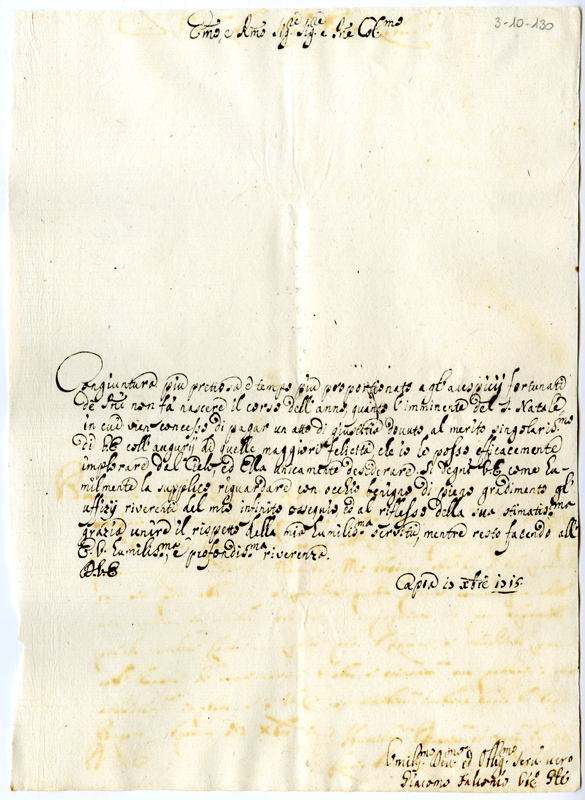 Em̃o, e Rmo Sig.re Sig.re e Pñe Col.mo
3-10-130
Congiuntura più pretiosa e tempo più proportionato a gl'auspicij fortunati
de Pñi non fà nascere il corso dell'anno, quanto l'imminente del S. Natale
in cui vien concesso di pagar un atto di giustitia dovuto al merito singolariss.mo
di V.E. coll'augurij di quelle maggiori felicità che io le posso efficacemente
implorare dal Cielo, ed Ella unicamente desiderare. Si degni V.E. come hu-
milmente la supplico riguardare con occhio benigno di pieno gradimento gl'
uffizij riverenti del mio infinito ossequio ed al riflesso della sua stimatiss.ma
grazia unire il rispetto della mia humiliss.ma servitù, mentre resto facendo all'
E.V. humiliss.ma, e profondiss.ma riverenza.
D.V.E.
Capua 13 Xbre 1715
Umiliss.mo Dev.mo ed Obblig.mo Serv. vero
Giacomo Falconio Vic.o